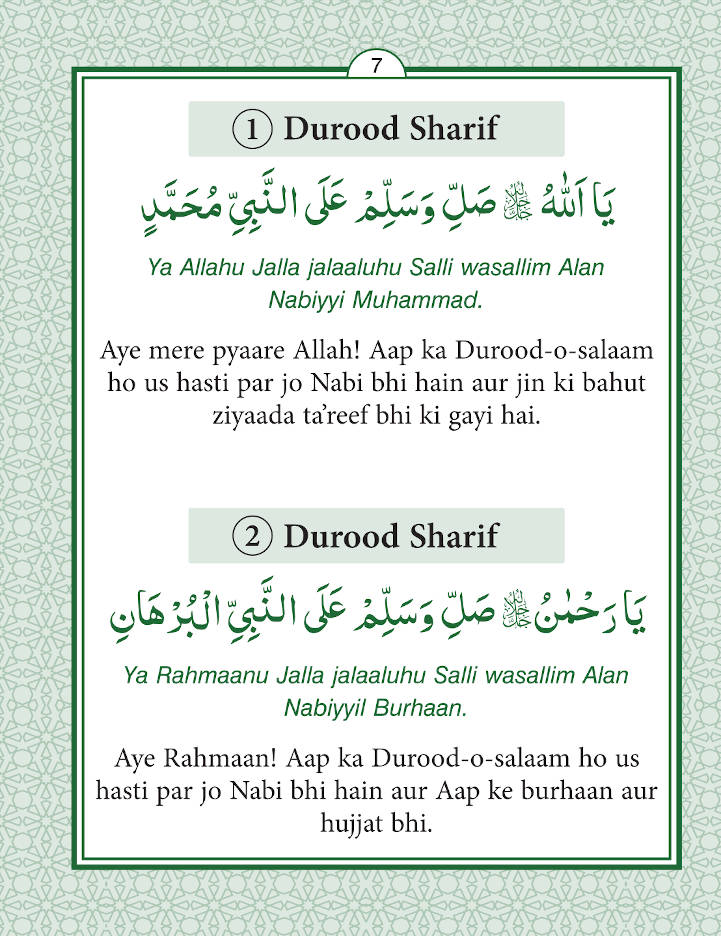 7
1 Durood Sharif
يَا اَللّٰهُ ﷻ صَلِّ وَسَلِّمْ عَلَى النَّبِيِّ مُحَمَّدٍ
Ya Allahu Jalla jalaaluhu Salli wasallim Alan
Nabiyyi Muhammad.
Aye mere pyaare Allah! Aap ka Durood-o-salaam
ho us hasti par jo Nabi bhi hain aur jin ki bahut
ziyaada ta’reef bhi ki gayi hai.
2 Durood Sharif
يَا رَحْمٰنُ ﷻ صَلِّ وَسَلِّمْ عَلَى النَّبِيِّ الْبُرْهَانِ
Ya Rahmaanu Jalla jalaaluhu Salli wasallim Alan
Nabiyyil Burhaan.
Aye Rahmaan! Aap ka Durood-o-salaam ho us
hasti par jo Nabi bhi hain aur Aap ke burhaan aur
hujjat bhi.